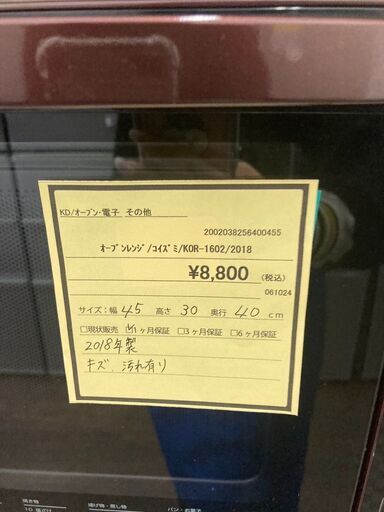 KD/オーブン・電子 その他
2002038256400455
オーブンレンジ/コイズミ/KOR-1602/2018
¥8,800 (税込)
061024
サイズ:幅 45 高さ 30 奥行 40 cm
□現状販売 ☑1ヶ月保証 □3ヶ月保証 □6ヶ月保証
2018年製
キズ、汚れ有り
焼き物
揚げ物・蒸し物
パン・お菓子
10